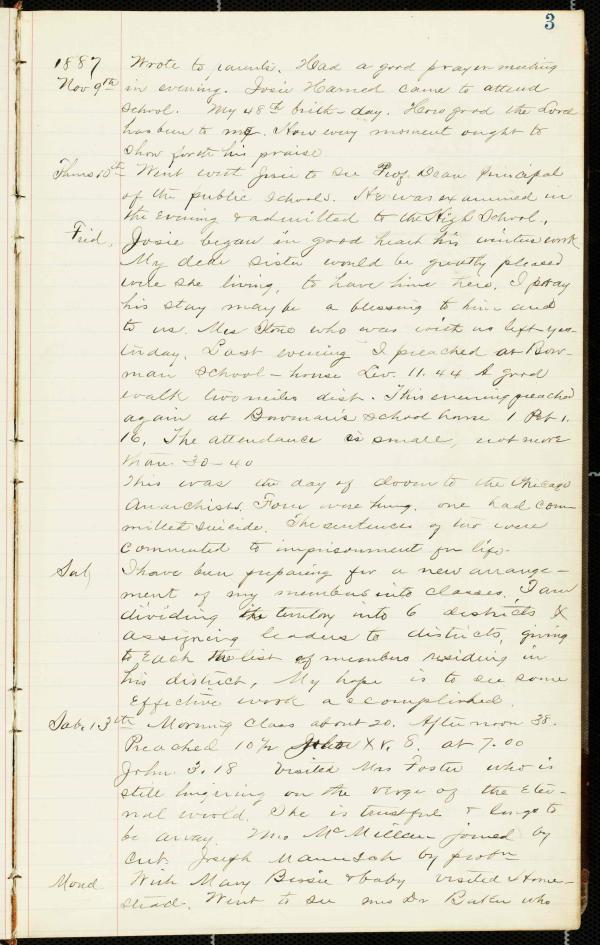 3
1887 Wrote to parents. Had a good prayer meeting
Nov 9th in evening. Josie Harned came to attend
School. My 48th birth-day. How good the Lord
has been to me. How every moment ought to
show forth his praise
Thurs 10th Went with Josie to see Prof. Dean Principal
of the public schools. He was examined in
the evening & admitted to the High School.
Frid. Josie began in good heart his winters work
My dear sister would be greatly pleased
were she living, to have him here. I pray
his stay may be a blessing to him and
to us. Mrs who was with us left yes-
terday. Last evening I preached at Bow-
man School-house Lev. 11.44 A good
walk two miles dist. This evening preached
again at Bowman's School house 1 Pet 1.
16. The attendance is small, not more
than 30-40
This was the day of doom to the Chicago
Anarchists. Four were hung. one had com-
mitted suicide. The sentences of two were
commuted to imprisonment for life.
Sat I have been preparing for a new arrange-
ment of my members into classes. I am
dividing the territory into 6 districts &
assigning leaders to districts, giving
to each the list of members residing in
his district. My hope is to see some
effective work accomplished.
Sab. 13th Morning Class about 20. Afternoon 38.
Preached 10½ XV. 8. at 7.00
John 3.18 Visited Mrs Foster who is
still lingering on the verge of the Eter-
nal world. She is trustful & longs to
be away. Mrs McMillan joined by
cert. Joseph by probn
Mond With Mary Bessie & baby visited Home-
stead. Went to see Mrs Dr Baker who